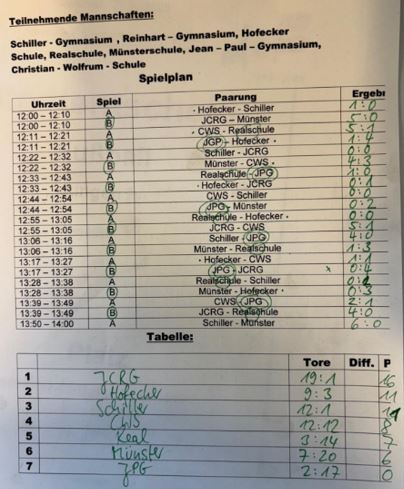 Teilnehmende Mannschaften:
Schiller - Gymnasium , Reinhart – Gymnasium, Hofecker
Schule, Realschule, Münsterschule, Jean – Paul – Gymnasium,
Christian - Wolfrum - Schule
Spielplan
Uhrzeit Spiel Paarung Ergebn
12:00 – 12:10 A Hofecker - Schiller 1:0
12:00 – 12:10 B JCRG – Münster 5:0
12:11 – 12:21 A CWS - Realschule 5:1
12:11 – 12:21 B JGP - Hofecker 1:4
12:22 – 12:32 A Schiller - JCRG 0:0
12:22 – 12:32 B Münster - CWS 4:3
12:33 – 12:43 A Realschule - JPG 1:0
12:33 – 12:43 B Hofecker - JCRG 0:1
12:44 – 12:54 A CWS - Schiller 0:0
12:44 – 12:54 B JPG - Münster 0:2
12:55 – 13:05 A Realschule - Hofecker 0:0
12:55 – 13:05 B JCRG - CWS 5:1
13:06 – 13:16 A Schiller - JPG 4:0
13:06 – 13:16 B Münster - Realschule 1:3
13:17 – 13:27 A Hofecker - CWS 1:1
13:17 – 13:27 B JPG - JCRG x 0:4
13:28 – 13:38 A Realschule - Schiller
13:28 – 13:38 B Münster - Hofecker 0:3
13:39 – 13:49 A CWS - JPG 2:1
13:39 – 13:49 B JCRG - Realschule 4:0
13:50 – 14:00 A Schiller - Münster 6:0
Tabelle:
Tore Diff. P
1 JCRG 19:1 16
2 Hofecher 9:3 11
3 Schiller 12:1 11
4 CWS 12:12 8
5 Real 3:14 7
6 Münster 7:20 6
7 JPG 2:17 0